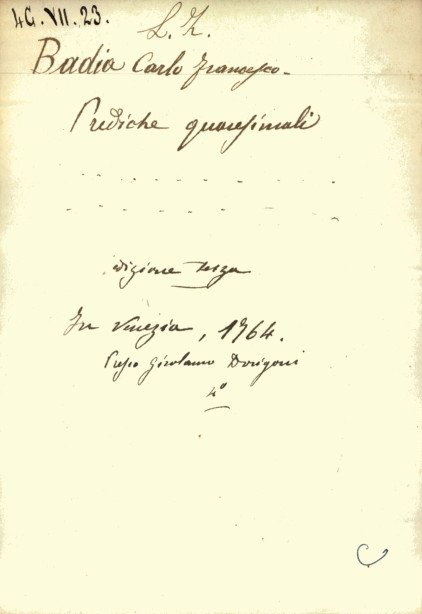 4G.VII.23.
L. Z.
Badia Carlo Francesco.
Prediche quaresimali
- - - - - - - -
- - - - - - - -
edizione terza
In Venezia, 1764.
Presso Girolamo Dorigoni
4°
C